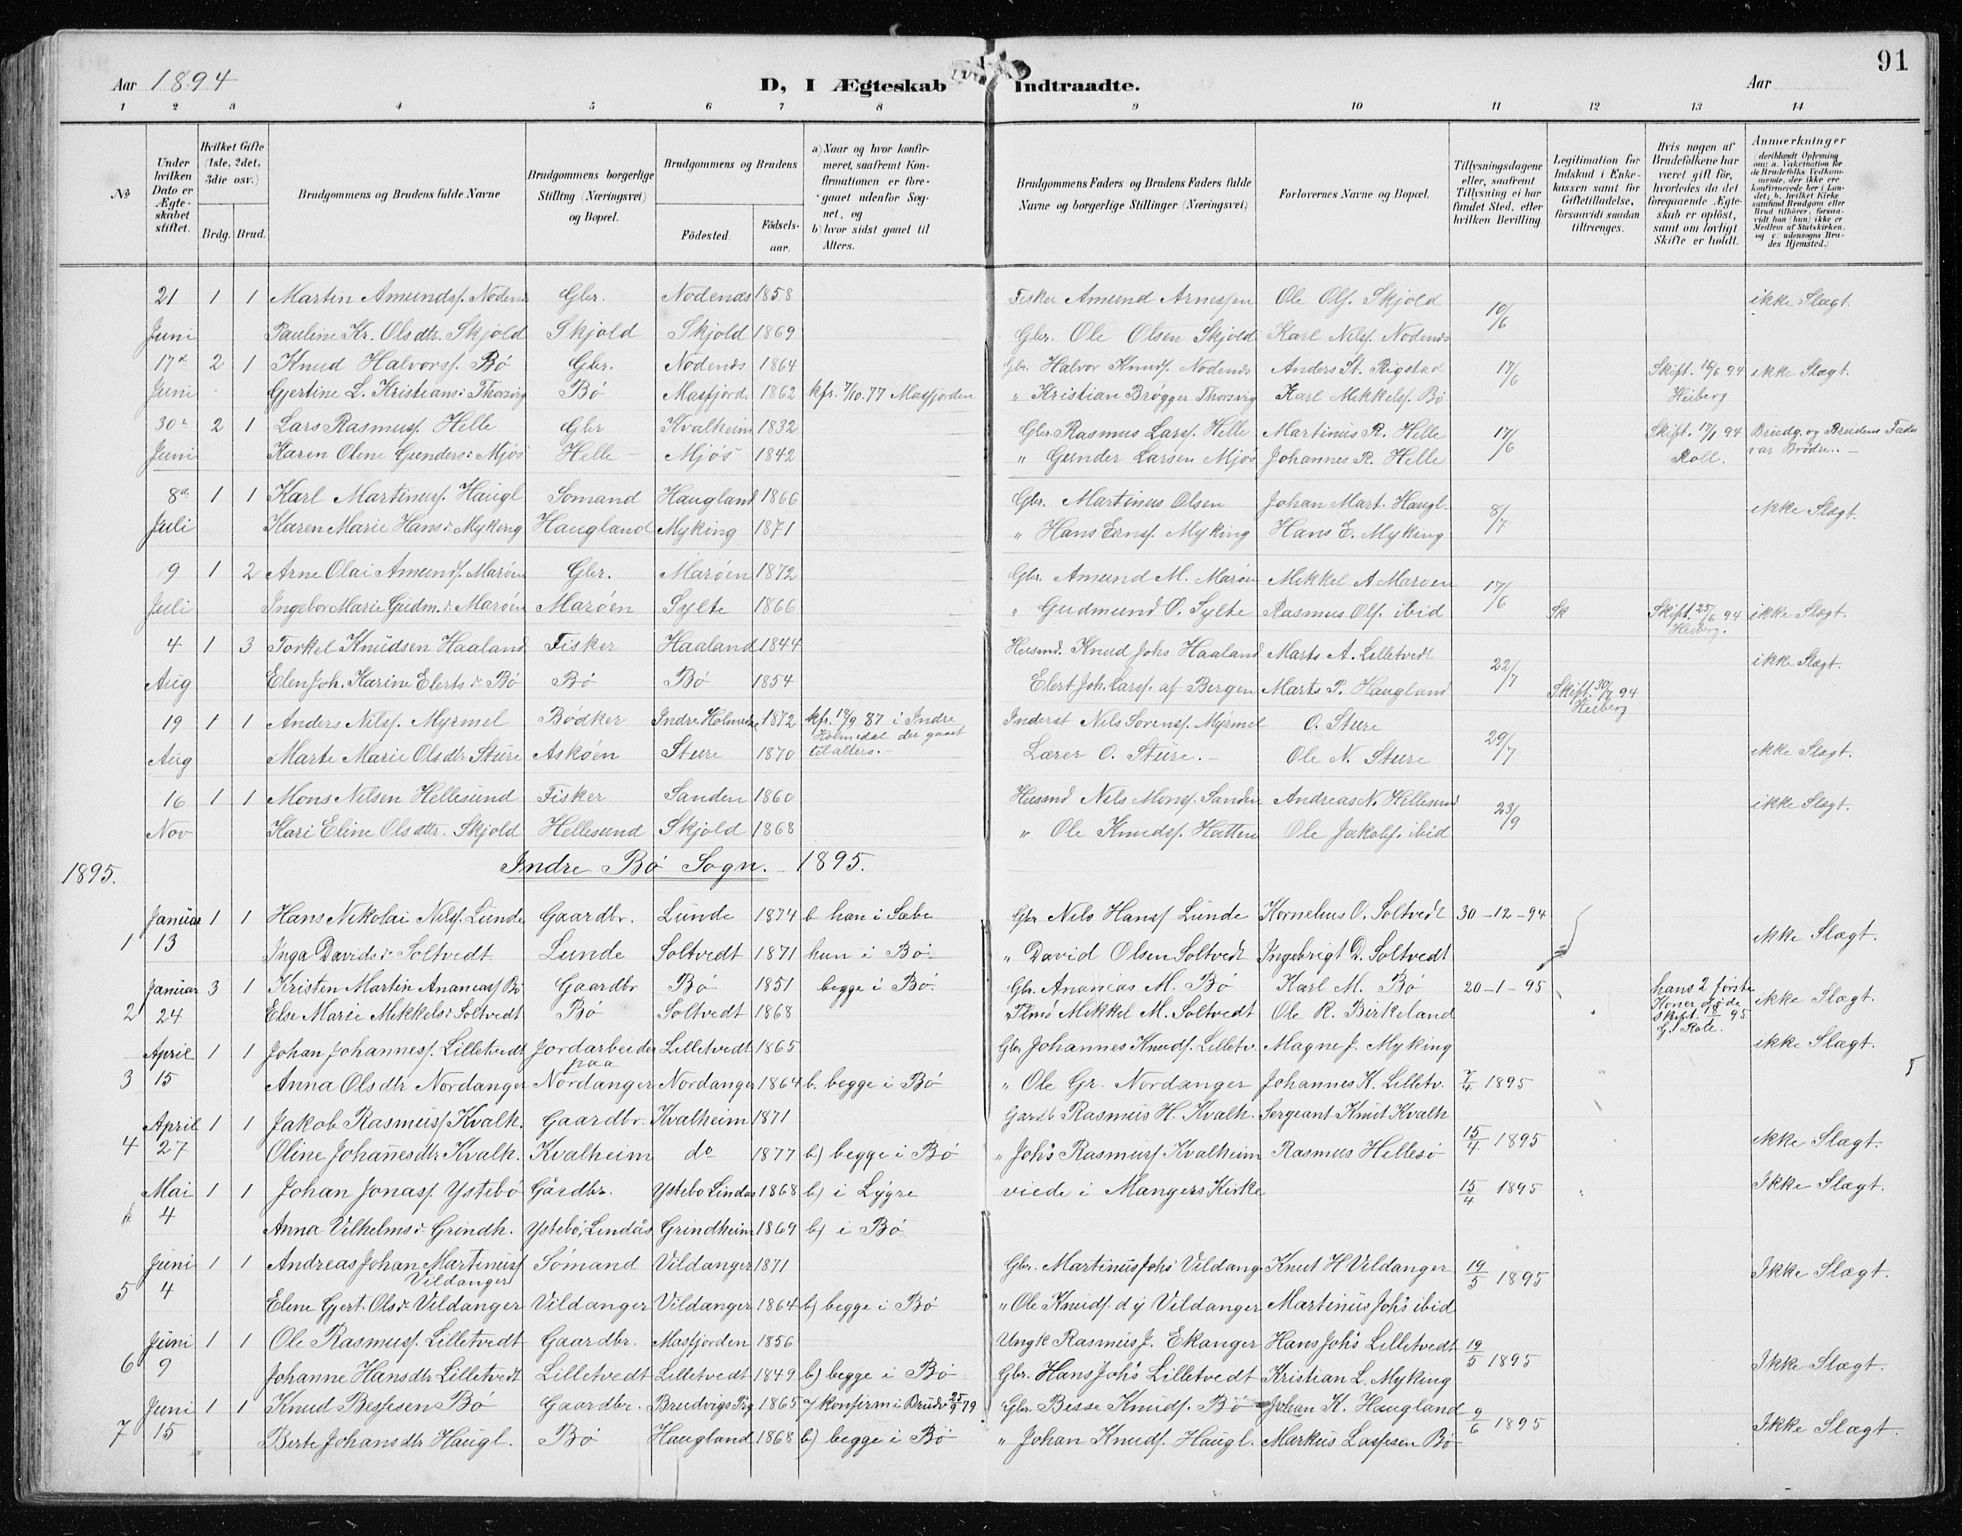 91
Aar 1894
D, I Ægteskab Indtraadte.
Aar
1 2 3 4 5 6 7 8 9 10 11 12 13 14
No
Under hvilken Dato er Ægteskabet stiftet.
Hvilket Gifte (1ste, 2det, 3die osv.)
Brdg. Brud.
Brudgommens og Brudens fulde Navne
Brudgommens borgerlige Stilling (Næringsvei) og Bopæl.
Brudgommens og Brudens
Fødested. Fødselsaar.
a) Naar og hvor konfirmeret, saafremt Konfirmationen er foregaaet udenfor Sognet, og
b) hvor sidst gaaet til Alters.
Brudgommens Faders og Brudens Faders fulde Navne og borgerlige Stillinger (Næringsvei)
Forlovernes Navne og Bopæl.
Tillysningsdagene eller, saafremt Tillysning ei har fundet Sted, efter hvilken Bevilling.
Legitimation for Indskud i Enkekassen samt for Giftetilladelse, forsaavidt saadan tiltrænges.
Hvis nogen af Brudefolkene har været gift før, hvorledes da det foregaaende Ægteskab er opløst, samt om lovligt Skifte er holdt.
Anmærkninger
21 1 1 Martin Amundsf. Nodenes Gbr. Nodenæs 1858 Fisker Amund Arnessen Ole Olf. Skjold 10/6 ikke Slægt.
Juni Pauline Kr. Olsdtr. Skjold Skjold Skjold 1869 Gbr. Ole Olsen Skjold Karl Nilsf. Nodenæs
17de 2 1 Knud Halvorsf. Bø Gbr. Nodenæs 1864 Gbr. Halvor Knudsf. Nodenæs Anders St. Rigstad 17/6 Skift. 16/6 94 ikke Slægt.
Juni Gjertine L. Kristians d. Bø Masfjord. 1862 kfr. 7/10.77 Masfjorden " Kristian Brøgger Karl Mikkelsf. Bø Heiberg
30te 2 1 Lars Rasmusf. Helle Gbr Kvalheim 1832 Gbr Rasmus Larsf. Helle Martinus R. Helle 17/6 Skift. 17/1 94 Brudg. og Brudens Fader
Juni Karen Oline Gunders d. Mjøs Helle Mjøs 1842 " Gunder Larsen Mjøs Johannes R. Helle Roll. var Brødre.
8de 1 1 Karl Martinusf. Haugl Sømand Haugland 1866 Gbr. Martinus Olsen Johan Mart. Haugl. 8/7 ikke Slægt.
Juli Karen Marie Hans d. Myking Haugland Myking 1871 " Hans Ernsf. Myking Hans E. Myking
9 1 2 Arne Olai Amundsf. Marøen Gbr. Marøen 1872 Gbr. Amund M. Marøen Mikkel A Marøen 17/6
Juli Ingebor Marie Gudm. d. Marøen Marøen Sylte 1866 " Gudmund O. Sylte Rasmus Olf. ibid Sk Skift. 25/6 94 ikke Slægt.
Heiberg.
4 1 3 Torkel Knudsen Haaland Fisker Haaland 1844 Husmd. Knud Johs Haaland Marts A. Lilletvedt 22/7 ikke Slægt.
Aug Elen Joh. Karine Elerts d. Bø Bø Bø 1854 Elert Joh. Larsf. af Bergen Marts P. Haugland Skift. 30/7 94
Heiberg
19 1 1 Anders Nilsf. Myrmel Bødker Indre Holmedal 1872 kfr. 18/9 87 i Indre Holmedal der gaaet til alters. Inderst Nils Sørensf. Myrmel O. Sture 29/7
Aug Marte Marie Olsdtr Sture Askøen Sture 1870 Lærer O. Sture. Ole N. Sture ikke Slægt.
16 1 1 Mons Nilsen Hellesund Fisker Sanden 1860 Husmd Nils Monsf. Sanden Andreas N. Hellesund 23/9 ikke Slægt.
Nov Kari Eline Olsdtr. Skjold Hellesund Skjold 1868 " Ole Knudsf. Hatten Ole Jakobsf. ibid
1895. Indre Bø Sogn. 1895.
Januar 1 1 Hans Nikolai Nilsf. Lunde Gaardbr. Lunde 1874 b han i Sæbø Gbr Nils Hansf Lunde Kornelius O. Soltvedt 30-12-94
1 13 Inga Davids d. Soltvedt Lunde Soltvedt 1871 hun i Bø " David Olsen Soltvedt Ingebrigt D. Soltvedt ikke Slægt.
Januar 3 1 Kristen Martin Ananiasf Bø Gaardbr Bø 1851 begge i Bø. Gbr Ananias M. Bø Karl M. Bø 20-1-95 hans 2 første Koner døde
2 24 Else Marie Mikkels d. Soltvedt Bø Soltvedt 1868 Mikkel M. Soltvedt Ole R. Birkeland skift. 95 ikke Slægt.
April 1 1 Johan Johannesf. Lilletvedt Jordarbeider Lilletvedt 1865 Gbr Johannes Knudsf. Lilletv. Magne J. Myking ikke Slægt.
paa
3 15 Anna Olsdtr Nordanger Nordanger Nordanger 1864 b. begge i Bø " Ole Gr. Nordanger Johannes K. Lilletv. 7/4 1895
April 1 1 Jakob Rasmusf Kvalh. Gaardbr. Kvalheim 1871 Gardb Rasmus H. Kvalh. Sergeant Knut Kvalh
4 27 Oline Johanesdtr Kvalh. Kvalheim do 1877 b) begge i Bø " Johs Rasmusf Kvalheim Rasmus Hillesø 15/4 1895 ikke Slægt.
Mai 1 1 Johan Jonasf Ystebø Gårdbr. Ystebø Lindås 1868 b) i Lygre viede i Mangers Kirke 15/4 1895 Ikke Slægt.
4 Anna Vilhelms d. Grindh. Ystebø, Lindås Grindheim 1869 b) i Bø
Juni 1 1 Andreas Johan Martinusf Vildanger Sømand Vildanger 1871 Gbr. Martinus Johs Vildang Knut H Vildanger 19/5 1895
5 4 Elene Gjert. Ols d. Vildanger Vildanger Vildanger 1864 b) begge i Bø " Ole Knudsf. d y Vildanger Martinus Johs ibid Ikke Slægt.
Juni 1 1 Ole Rasmusf. Lilletvedt Gaardbr. Masfjorden 1856 Ungk Rasmus J. Ekanger Hans Johs Lilletvedt 19/5 1895
6 9 Johanne Hansdtr Lilletvedt Lilletvedt Lilletvedt 1849 b) begge i Bø Gbr. Hans Johs Lilletvedt Kristian L. Myking Ikke Slægt.
Juni 1 1 Knud Bessesen Bø Gaardbr. Brudvigs Prg 1865 a) konfirm i Brudv 25/9 79 Gbr. Besse Knudsf. Bø Johan K. Haugland 9/6 1895
7 15 Berte Johansdtr Haugl. Bø Haugland 1868 b) begge i Bø " Johan Knudsf. Haugl. Markus Lassesen Bø Ikke Slægt.